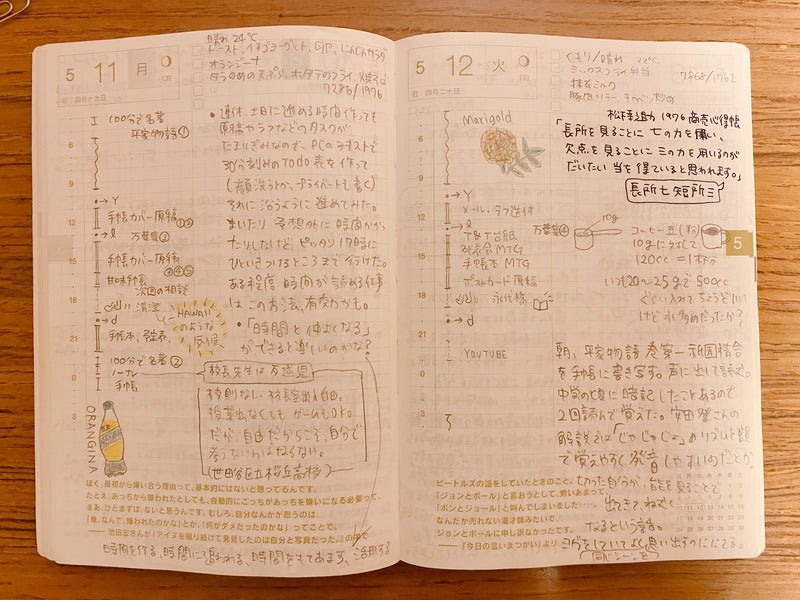 5 11 月
132
旧:四月十九日
晴れ 24℃
トースト、イチゴヨーグルト、GJP、にんじんサラダ
オランジーナ
タラのめの天ぷら、ホタテのフライ、焼そば
7286/1976
3
6
9
12
15
18
21
0
3
100分で名著
平家物語①
→Y
手帳カバー原稿①②
万葉集②
手帳カバー原稿
③④⑤
甘味手帳
次回の相談
→d
手帳本、発表
100分で名著②
ノーナレ
手帳
HAWAII
のような
気候
ORANGINA
・連休、土日に進める時間作っても
原稿やラフなどのタスクが
たまりぎみなので、PCのテキストで
30分刻みのTODO表を作って
(顔洗うとか、プライベートも書く)
それに沿うように進めてみた。
まいたり予想外に時間かか
ったりしたけど、ピッタリ17時に
ひといきつけるところまで行けた。
ある程度時間が読める仕事
は、この方法、有効かも。
・「時間と仲よくなる」
ができると楽しいのかな?
校長先生は
校則なし、校長室出入自由。
授業出なくてもゲームもOK
だが、自由だからこそ、自分で
考えないわばならない。
(世田谷区立桜丘
ぼく、最初から嫌い合う理由って、基本的にはないと思ってるんです。
たとえ、あっちから嫌われたとしても、自動的にこっちがあっちを嫌いになる必要って、
まあ、ひとまずは、ないと思うんです。むしろ、自分なんかが思うのは、
「俺、なんで、嫌われたのかな」とか、「何がダメだったのかな」ってことで。
——池田宏さんが「アイヌを撮り続けて発見したのは自分と写真だった。」の中で
時間を作る、時間に追われる、時間をもてあます、活用する
5 12 火
133
旧:四月二十日
くもり/晴れ 22℃
ミックスフライ弁当
抹茶ミルク
豚肉ソテー、キャベツ炒め
7868/1762
3
6
9
12
15
18
21
0
3
Marigold
メール、ラフ送付
→Y
T&T台紙
万葉集④
発表会MTG
手帳本MTG
ポストカード原稿
→d
YOUTUBE
松下幸之助 1976 商売心得帳
「長所を見ることに七の力を用い、
欠点を見ることに三の力を用いるのが
だいたい当を得ていると思われます。」
長所七 短所三
10g
コーヒー豆(粉)
10gに対して
120cc=1杯分
いつも20〜25gで500cc
ぐらい入れてちょうどいい
けど水多めだったか?
5
朝、平家物語 巻第一 祇園精舎
を手帳に書き写す。声に出して読む。
中学の頃に暗記したことあるので
2回読んで覚えた。安田登さんの
解説では「じゃじゃじょ」のリズムと韻
で覚えやすく発音しやすいのだとか。
ビートルズの話をしていたときのこと。
「ジョンとポール」と言おうとして、勢いあまって、
「ポンとジョール」と叫んでしまいました……。
なんだか売れない漫才師みたいで、
ジョンとポールに申し訳なかったです。
——「今日の言いまつがい」より
なるという話。
ヨガをしていてよく思い出すのににてる。
(同じシーンを)